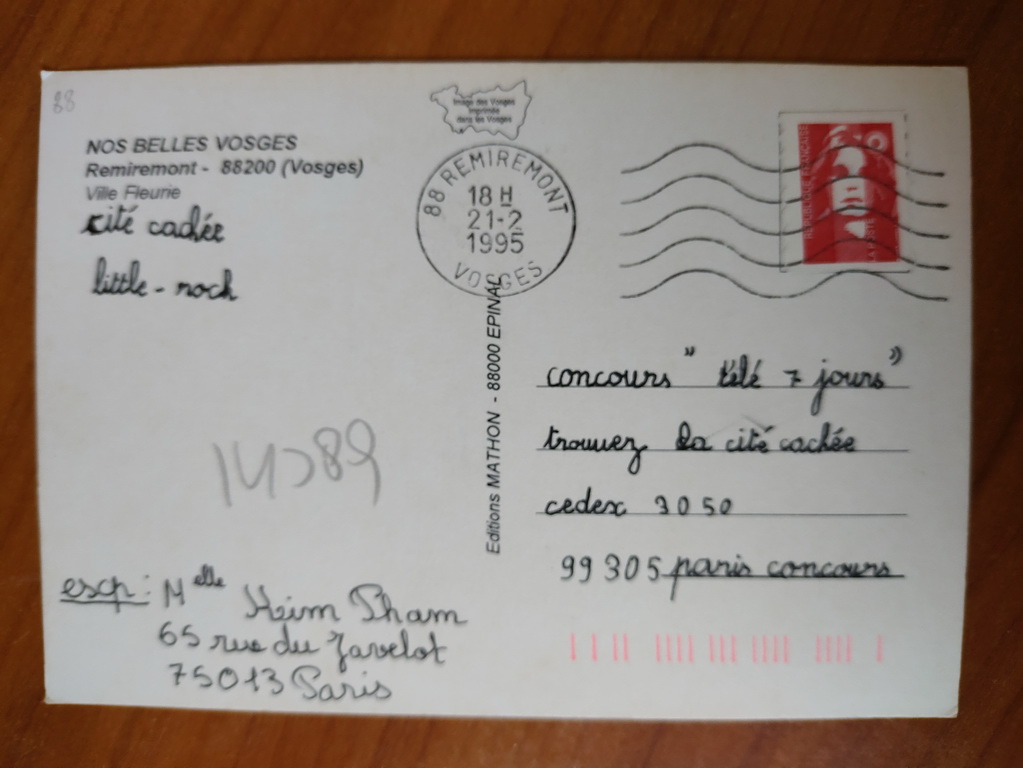 88
Image des Vosges
Imprimée
dans les Vosges
NOS BELLES VOSGES
Remiremont - 88200 (Vosges)
Ville Fleurie
cité cachée
little - roch
88 REMIREMONT
18 H
21-2
1995
VOSGES
REPUBLIQUE FRANÇAISE
LA POSTE
Editions MATHON - 88000 EPINAL
concours "télé 7 jours"
trouvez la cité cachée
cedex 3050
99305 paris concours
exp: Melle Keim Pham
65 rue du Javelot
75013 Paris